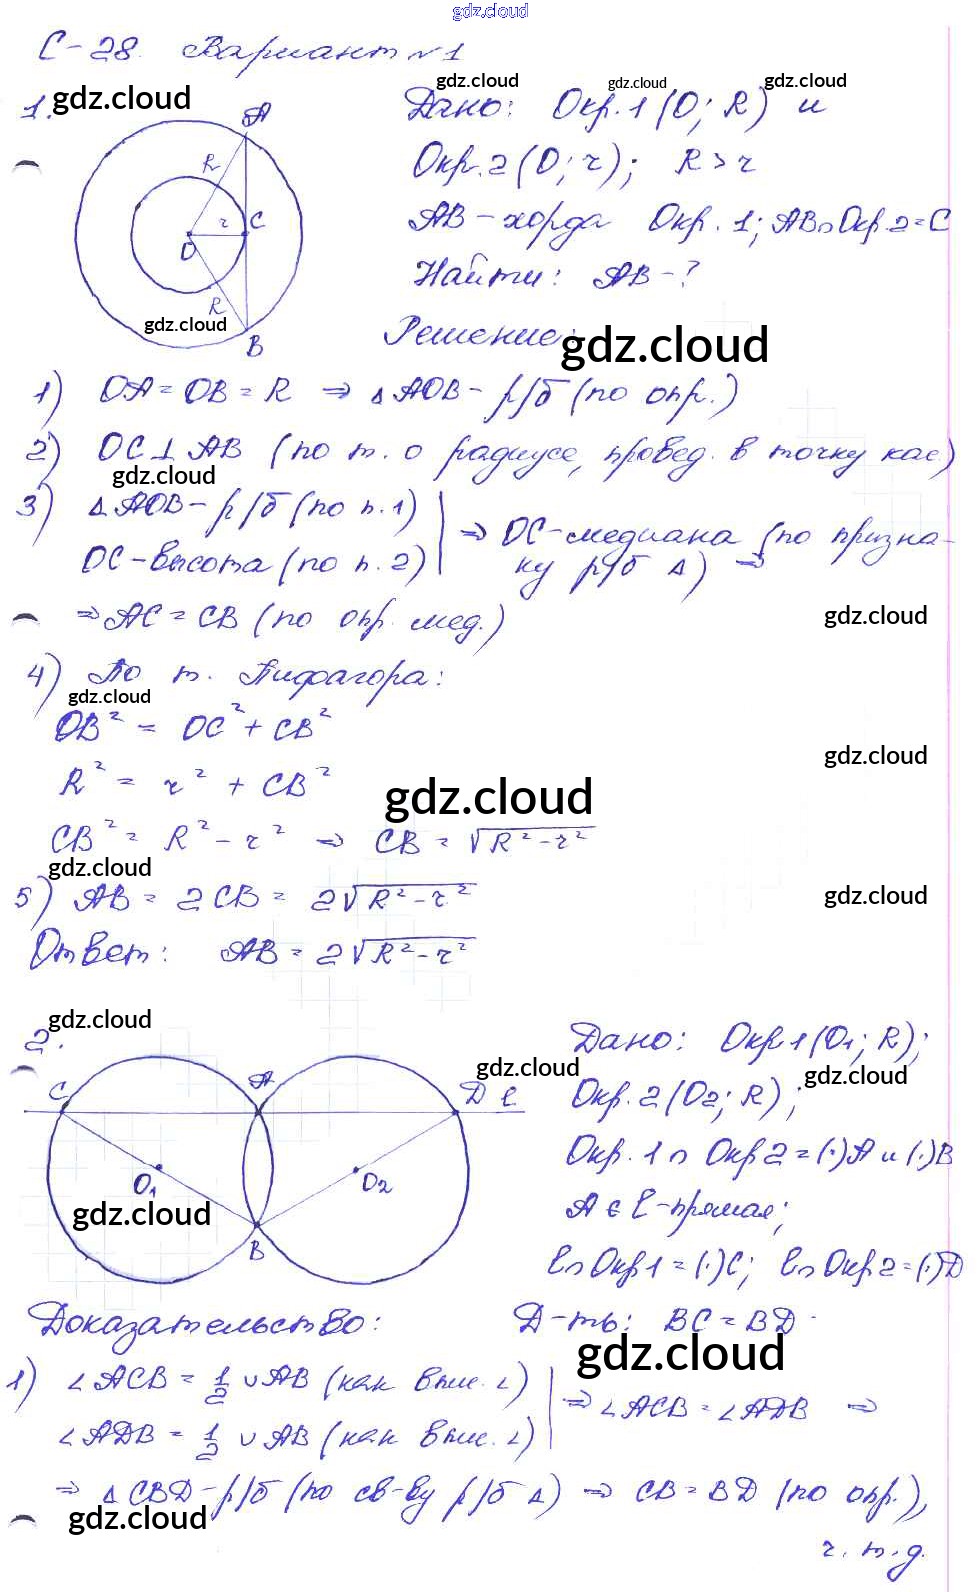 gdz.cloud
С-28. Вариант №1
gdz.cloud
gdz.cloud
gdz.cloud
gdz.cloud
1.
A
R
r
C
O
R
B
gdz.cloud
Дано: Окр.1 (O; R) и
Окр.2 (O; r); R > r
AB - хорда Окр. 1; AB ∩ Окр.2 = C
Найти: AB - ?
Решение:
gdz.cloud
1) OA = OB = R ⇒ △AOB - р/б (по опр.)
2) OC ⊥ AB (по т. о радиусе, провед. в точку кас)
gdz.cloud
3) △AOB - р/б (по п.1)
OC - высота (по п. 2)
⇒ OC - медиана (по призна-
ку р/б △) ⇒
⇒ AC = CB (по опр. мед.)
gdz.cloud
4) По т. Пифагора:
gdz.cloud
OB² = OC² + CB²
gdz.cloud
R² = r² + CB²
gdz.cloud
CB² = R² - r² ⇒ CB = √R² - r²
gdz.cloud
5) AB = 2CB = 2√R² - r²
gdz.cloud
Ответ: AB = 2√R² - r²
gdz.cloud
2.
C
A
D l
O₁
O₂
B
gdz.cloud
gdz.cloud
Дано: Окр1 (O₁; R);
gdz.cloud
Окр.2 (O₂; R);
Окр.1 ∩ Окр2 = (·)A и (·)B
A ∈ l - прямая;
l ∩ Окр1 = (·)C; l ∩ Окр2 = (·)D
Доказательство:
Д-ть: BC = BD
gdz.cloud
1) ∠ACB = 1/2 ∪AB (как впис. ∠)
∠ADB = 1/2 ∪AB (как впис. ∠)
⇒ ∠ACB = ∠ADB ⇒
⇒ △CBD - р/б (по св-ву р/б △) ⇒ CB = BD (по опр.),
gdz.cloud
ч. т. д.